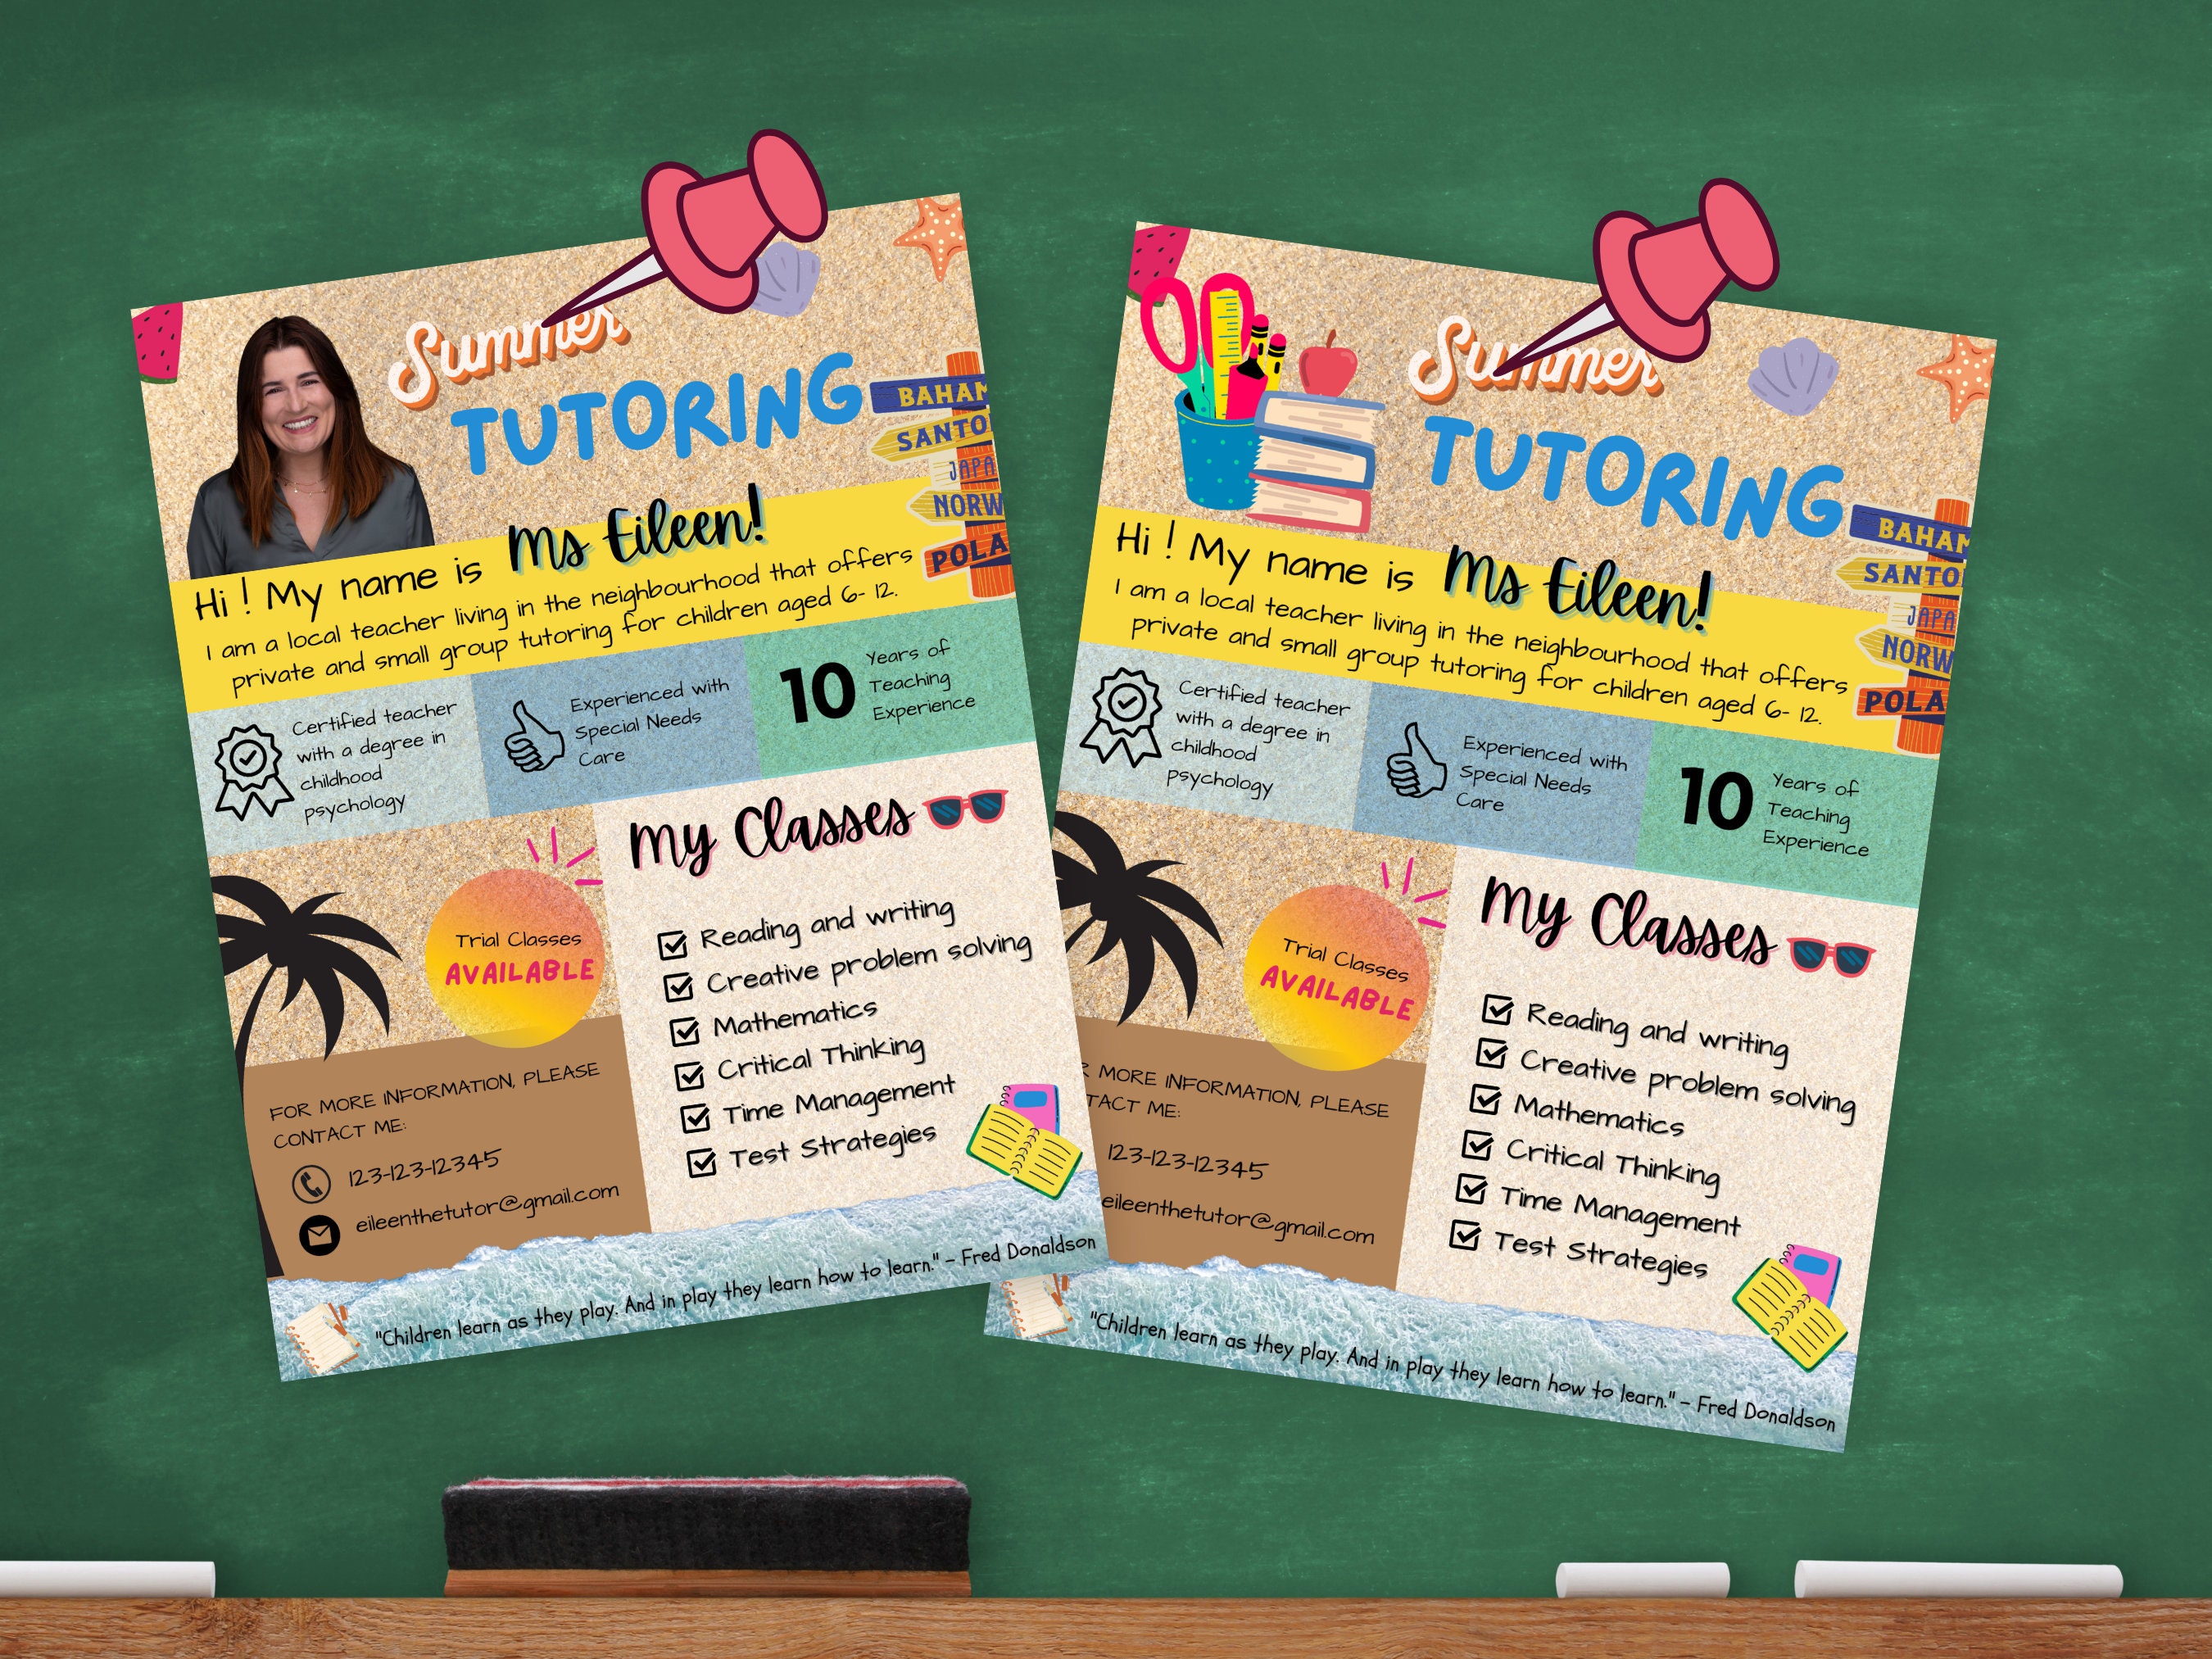 Summer
TUTORING
BAHAM
SANTO
JAPA
NORW
POLA
Hi ! My name is Ms Eileen!
I am a local teacher living in the neighbourhood that offers
private and small group tutoring for children aged 6- 12.
Certified teacher
with a degree in
childhood
psychology
Experienced with
Special Needs
Care
10
Years of
Teaching
Experience
Trial Classes
AVAILABLE
My Classes
Reading and writing
Creative problem solving
Mathematics
Critical Thinking
Time Management
Test Strategies
FOR MORE INFORMATION, PLEASE
CONTACT ME:
123-123-12345
eileenthetutor@gmail.com
"Children learn as they play. And in play they learn how to learn." - Fred Donaldson
Summer
TUTORING
BAHAM
SANTO
JAPA
NORW
POLA
Hi ! My name is Ms Eileen!
I am a local teacher living in the neighbourhood that offers
private and small group tutoring for children aged 6- 12.
Certified teacher
with a degree in
childhood
psychology
Experienced with
Special Needs
Care
10
Years of
Teaching
Experience
Trial Classes
AVAILABLE
My Classes
Reading and writing
Creative problem solving
Mathematics
Critical Thinking
Time Management
Test Strategies
R MORE INFORMATION, PLEASE
TACT ME:
123-123-12345
eileenthetutor@gmail.com
"Children learn as they play. And in play they learn how to learn." - Fred Donaldson